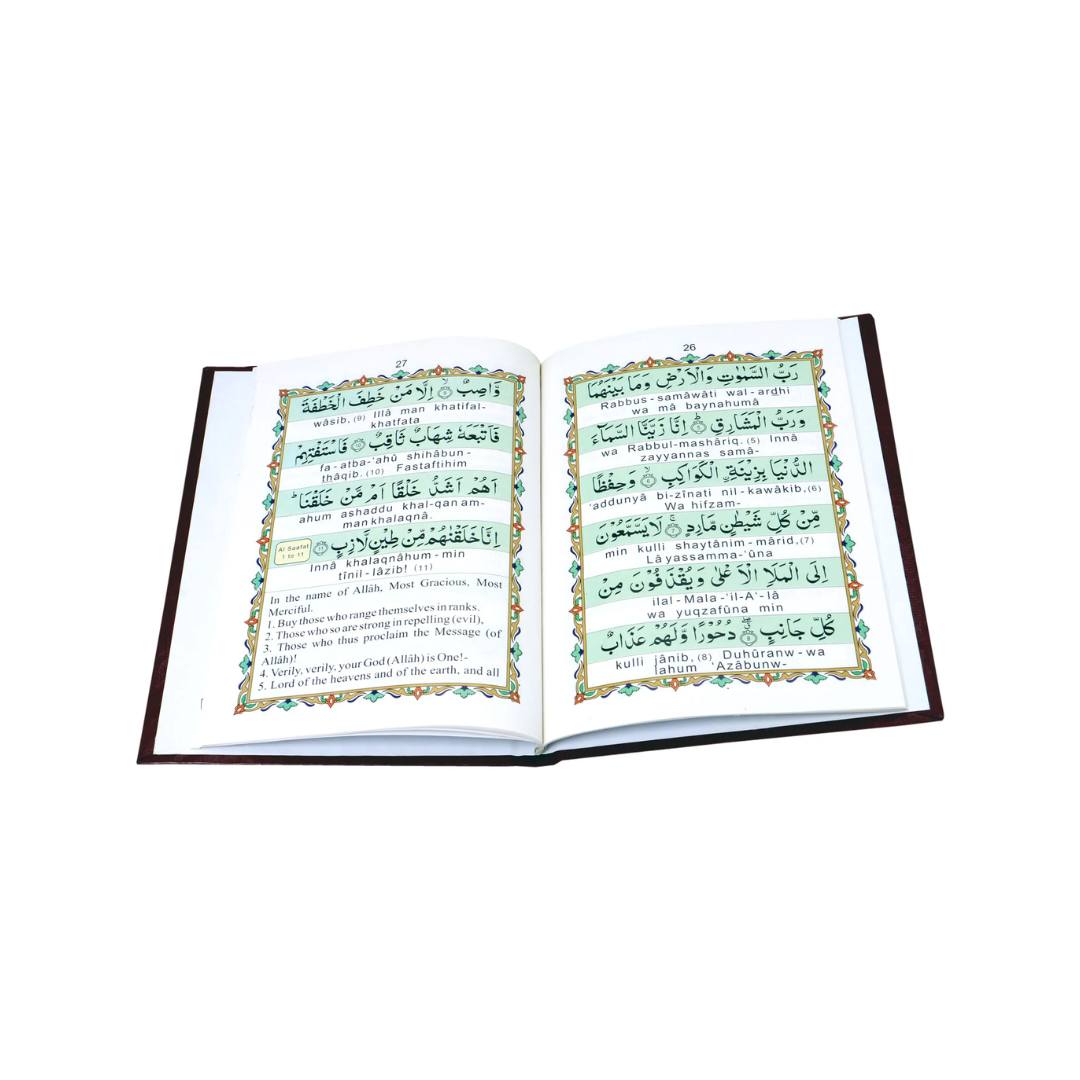 26
رَبُّ السَّمٰوٰتِ وَالْاَرْضِ وَمَا بَيْنَهُمَا
Rabbus-samâwâti wal-ardhi
wa mâ baynahumâ
وَرَبُّ الْمَشَارِقِ ۝٥ اِنَّا زَيَّنَّا السَّمَآءَ
wa Rabbul-mashâriq. (5) Innâ
zayyannas samâ-
الدُّنْيَا بِزِيْنَةِ ࣙالْكَوَاكِبِ ۝٦ وَحِفْظًا
'addunyâ bi-zînati nil-kawâkib, (6)
Wa hifzam-
مِّنْ كُلِّ شَيْطٰنٍ مَّارِدٍ ۝٧ لَا يَسَّمَّعُوْنَ
min kulli shaytânim-mârid, (7)
Lâ yassamma-'ûna
اِلَى الْمَلَاِ الْاَعْلٰى وَيُقْذَفُوْنَ مِنْ
ilal-Mala-'il-A'-lâ
wa yuqzafûna min
كُلِّ جَانِبٍ ۝٨ دُحُوْرًا وَّلَهُمْ عَذَابٌ
kulli jânib, (8) Duhûranw-wa
lahum 'Azâbunw-
27
وَّاصِبٌ ۝٩ اِلَّا مَنْ خَطِفَ الْخَطْفَةَ
wâsib, (9) Illâ man khatifal-
khatfata
فَاَتْبَعَهٗ شِهَابٌ ثَاقِبٌ ۝١٠ فَاسْتَفْتِهِمْ
fa-atba-'ahû shihâbun-
thâqib. (10) Fastaftihim
اَهُمْ اَشَدُّ خَلْقًا اَمْ مَّنْ خَلَقْنَا ؕ
ahum ashaddu khal-qan am-
man khalaqnâ.
اِنَّا خَلَقْنٰهُمْ مِّنْ طِيْنٍ لَّازِبٍ ۝١١
Al Saafat
1 to 11
Innâ khalaqnâhum-min
tînil-lâzib! (11)
In the name of Allâh, Most Gracious, Most
Merciful.
1. Buy those who range themselves in ranks,
2. Those who so are strong in repelling (evil),
3. Those who thus proclaim the Message (of
Allâh)!
4. Verily, verily, your God (Allâh) is One!-
5. Lord of the heavens and of the earth, and all